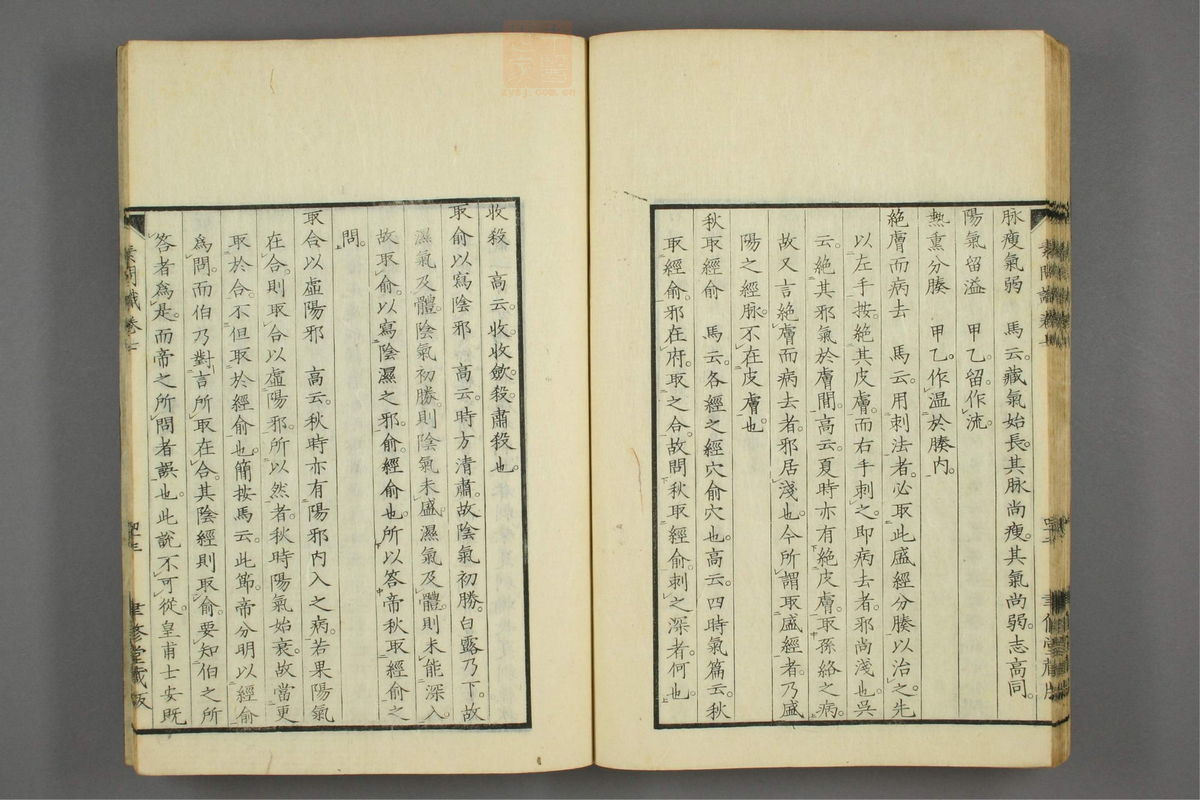 脉瘦氣弱　馬云。藏氣始長。其脉尚瘦。其氣尚弱。志高同。
陽氣留溢　甲乙。留作流。
熱熏分腠　甲乙。作溫於腠內。
絕膚而病去　馬云。用刺法者。必取此盛經分腠以治之。先
以左手按絕其皮膚。而右手刺之。即病去者。邪尚淺也。吳
云。絕其邪氣於膚間。高云。夏時亦有絕皮膚。取孫絡之病。
故又言絕膚而病去者。邪居淺也。今所謂取盛經者。乃盛
陽之經脉。不在皮膚也。
秋取經俞　馬云。各經之經穴俞穴也。高云。四時氣篇云。秋
取經俞。邪在府。取之合。故問秋取經俞。刺之深者。何也。
收殺　高云。收收斂。殺。肅殺也。
取俞以寫陰邪　高云。時方清肅。故陰氣初勝。白露乃下。故
濕氣及體。陰氣初勝。則陰氣未盛。濕氣及體。則未能深入。
故取俞。以寫陰濕之邪。俞。經俞也。所以答帝秋取經俞之
問。
取合以虛陽邪　高云。秋時亦有陽邪內入之病。若果陽氣
在合。則取合以虛陽邪。所以然者。秋時陽氣始衰。故當更
取於合。不但取於經俞也。簡按馬云。此節。帝分明以經俞
為問。而伯乃對言所取在合。其陰經則取俞。要知伯之所
答者為是。而帝之所問者誤也。此說不可從。皇甫士安既
素問識卷七
聿修堂藏版